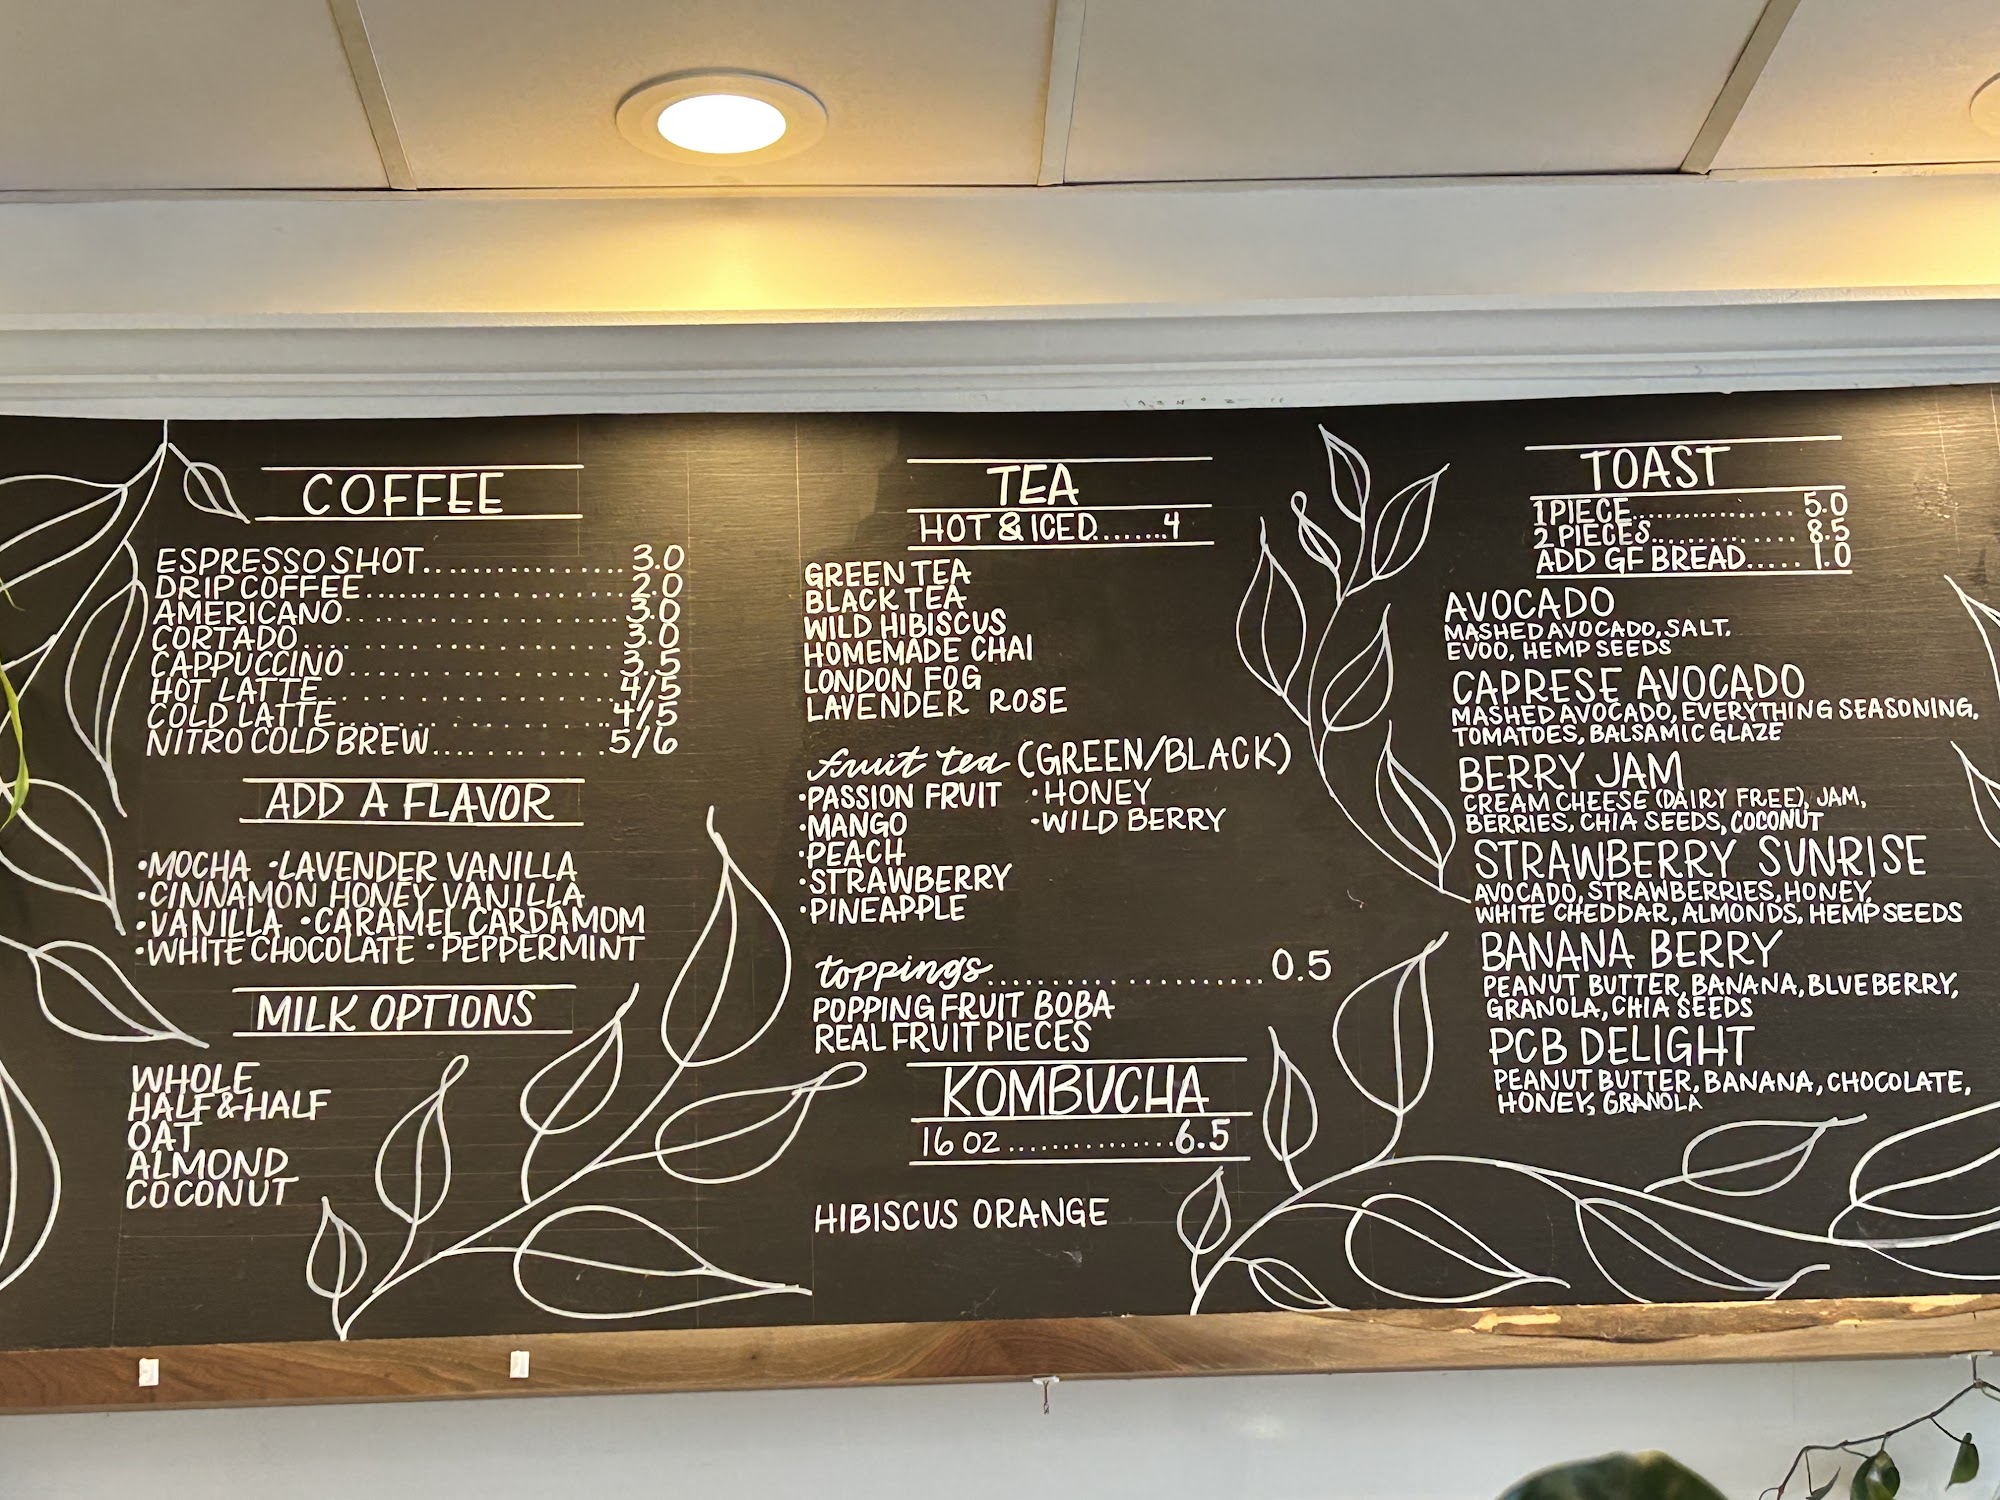 COFFEE
ESPRESSO SHOT..................3.0
DRIP COFFEE..................2.0
AMERICANO..................3.0
CORTADO..................3.0
CAPPUCCINO..................3.5
HOT LATTE..................4/5
COLD LATTE..................4/5
NITRO COLD BREW..................5/6
ADD A FLAVOR
•MOCHA •LAVENDER VANILLA
•CINNAMON HONEY VANILLA
•VANILLA •CARAMEL CARDAMOM
•WHITE CHOCOLATE •PEPPERMINT
MILK OPTIONS
WHOLE
HALF & HALF
OAT
ALMOND
COCONUT
TEA
HOT & ICED........4
GREEN TEA
BLACK TEA
WILD HIBISCUS
HOMEMADE CHAI
LONDON FOG
LAVENDER ROSE
fruit tea (GREEN/BLACK)
•PASSION FRUIT •HONEY
•MANGO •WILD BERRY
•PEACH
•STRAWBERRY
•PINEAPPLE
toppings......................0.5
POPPING FRUIT BOBA
REAL FRUIT PIECES
KOMBUCHA
16 OZ..............6.5
HIBISCUS ORANGE
TOAST
1 PIECE.................5.0
2 PIECES...............8.5
ADD GF BREAD.....1.0
AVOCADO
MASHED AVOCADO, SALT,
EVOO, HEMP SEEDS
CAPRESE AVOCADO
MASHED AVOCADO, EVERYTHING SEASONING,
TOMATOES, BALSAMIC GLAZE
BERRY JAM
CREAM CHEESE (DAIRY FREE), JAM,
BERRIES, CHIA SEEDS, COCONUT
STRAWBERRY SUNRISE
AVOCADO, STRAWBERRIES, HONEY,
WHITE CHEDDAR, ALMONDS, HEMP SEEDS
BANANA BERRY
PEANUT BUTTER, BANANA, BLUEBERRY,
GRANOLA, CHIA SEEDS
PCB DELIGHT
PEANUT BUTTER, BANANA, CHOCOLATE,
HONEY, GRANOLA